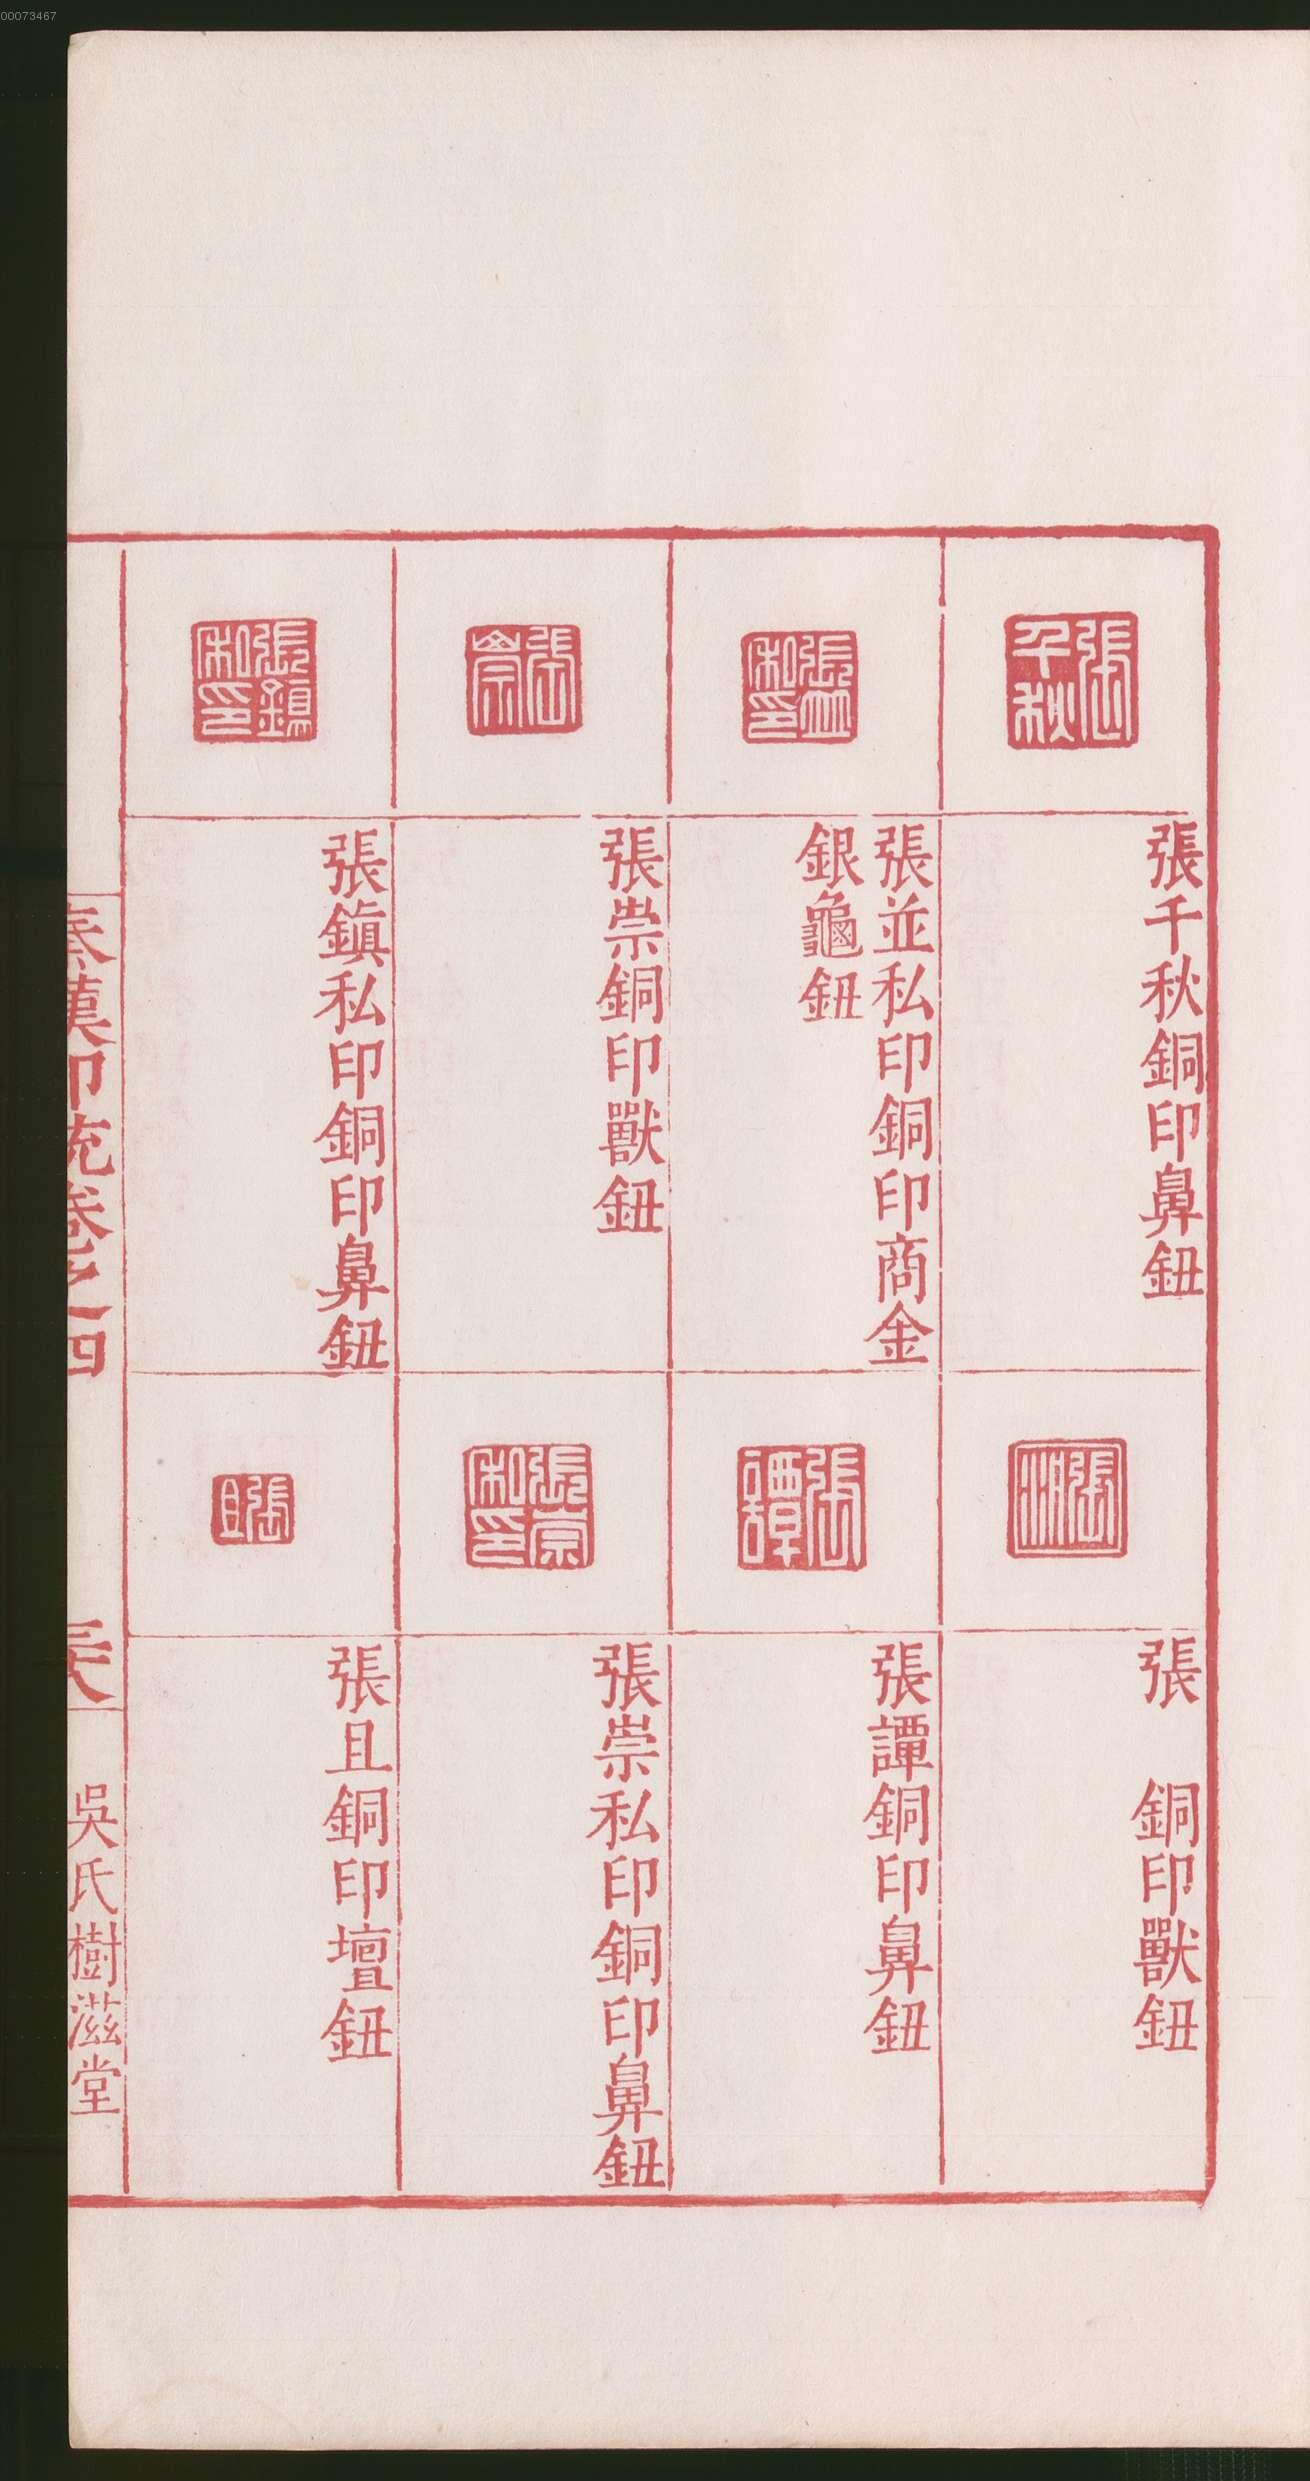 00073467
張千秋
張千秋銅印鼻鈕
張
張　銅印獸鈕
張並私印
張並私印銅印商金
銀龜鈕
張譚
張譚銅印鼻鈕
張崇
張崇銅印獸鈕
張崇私印
張崇私印銅印鼻鈕
張鎭私印
張鎭私印銅印鼻鈕
張且
張且銅印壇鈕
秦漢印统卷之四
吳氏樹滋堂